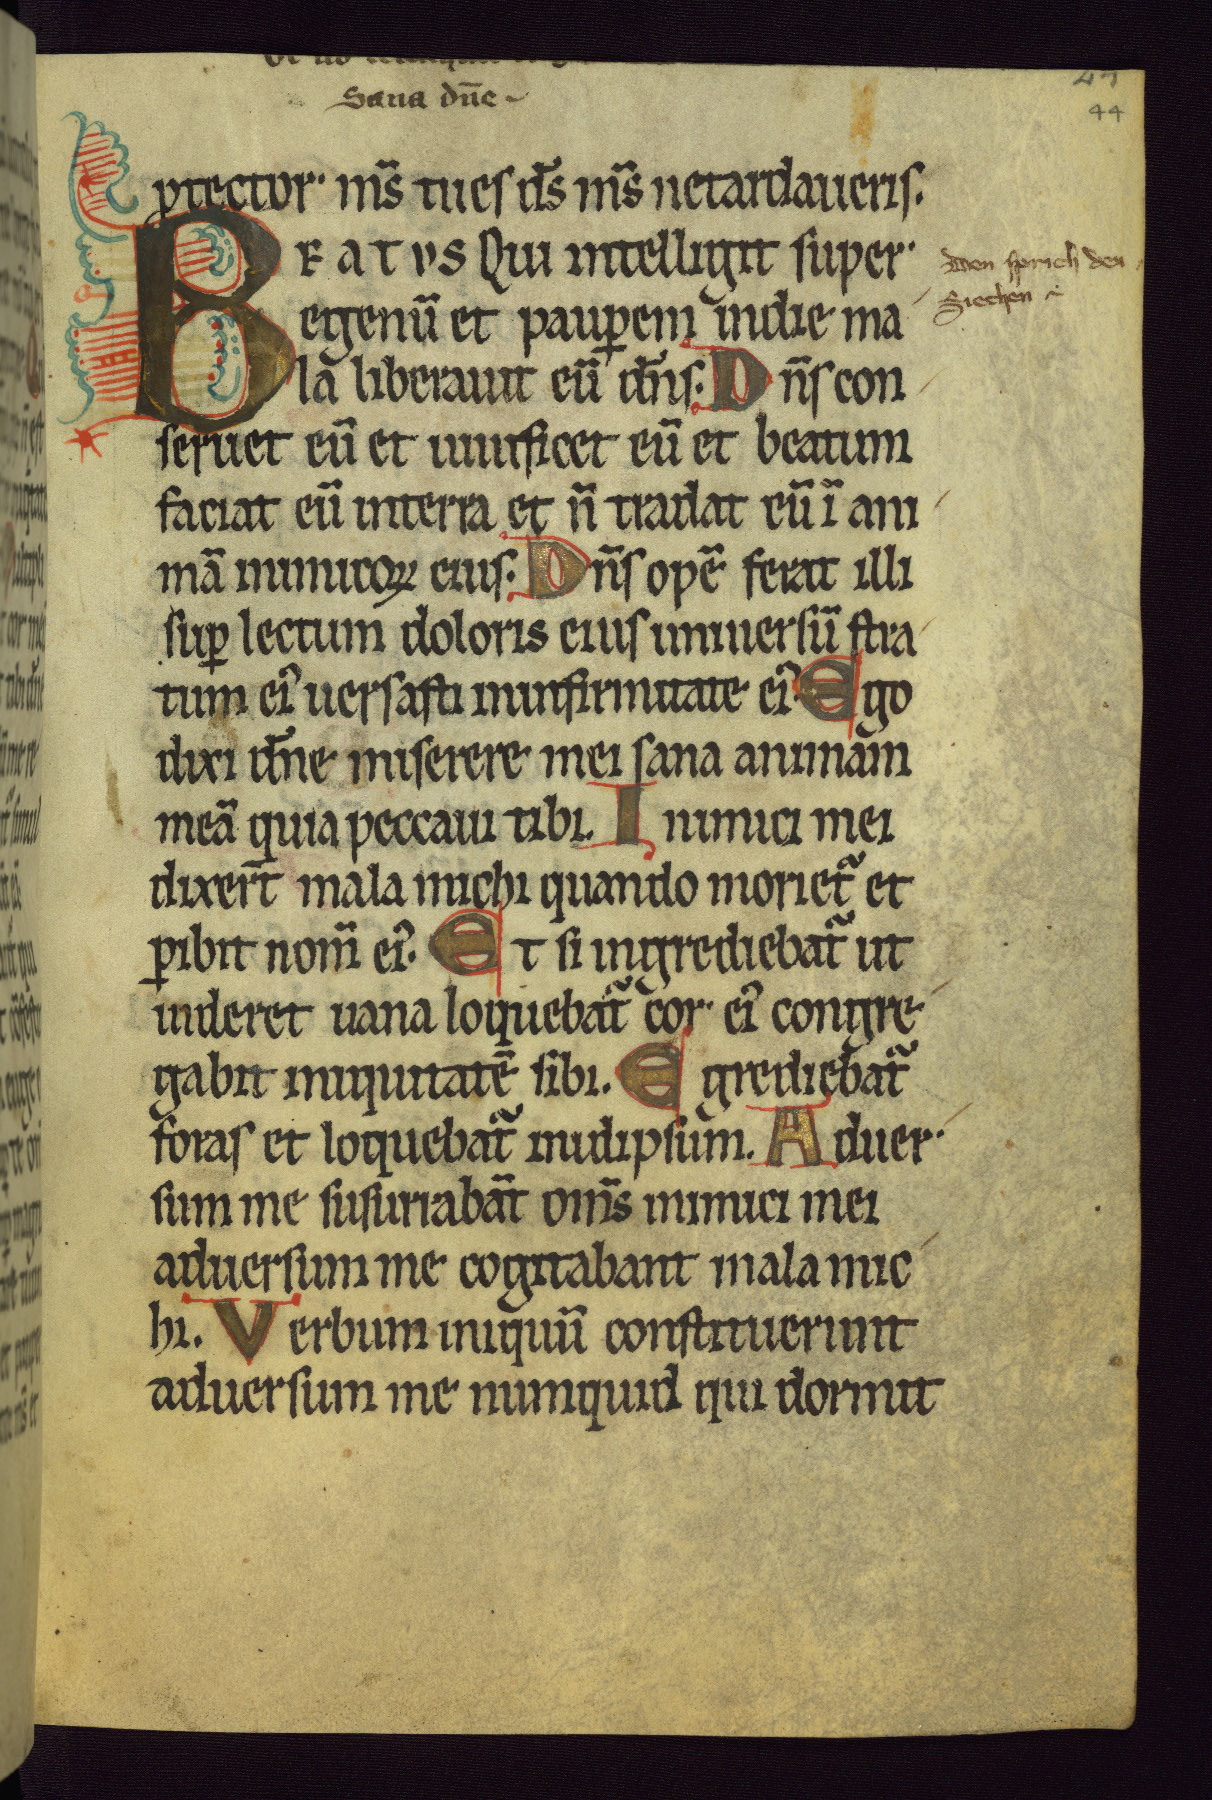 Sana dñe
44
ꝓtector nr̃s tu es ds̃ nr̃s ne tardaueris.
BEATVS Qui intelligit super
egenũ et pauꝑem in die ma
la liberauit eũ dñs. Dñs con
seruet eũ et uiuificet eũ et beatum
faciat eũ in terra et ñ tradat eũ ĩ ani
mã inimicoꝝ eius. Dñs opẽ ferat illi
suꝑ lectum doloris eius uniuersũ stra
tum eiꝰ uersasti in infirmitate eiꝰ. Ego
dixi dñe miserere mei sana animam
meã quia peccaui tibi. Inimici mei
dixer̃t mala michi quando moriet᷑ et
ꝑibit nom̃ eiꝰ. Et si ingrediebat᷑ ut
uideret uana loquebat᷑ cor eiꝰ congre
gabit iniquitatẽ sibi. Egrediebat᷑
foras et loquebat᷑ in idipsum. Aduer
sum me susurrabãt om̃s inimici mei
aduersum me cogitabant mala mic
hi. Verbum iniquũ constituerunt
aduersum me numquid qui dormit
den sprich den
Siechen